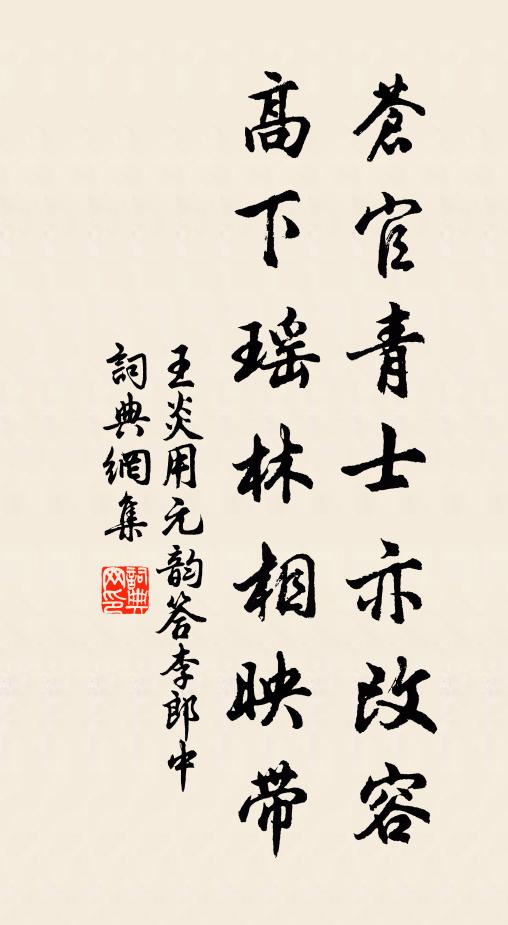 蒼官青士亦改容
高下瑤林相映带
王炎用元韵答李郎中
詞典網集
詞典網印